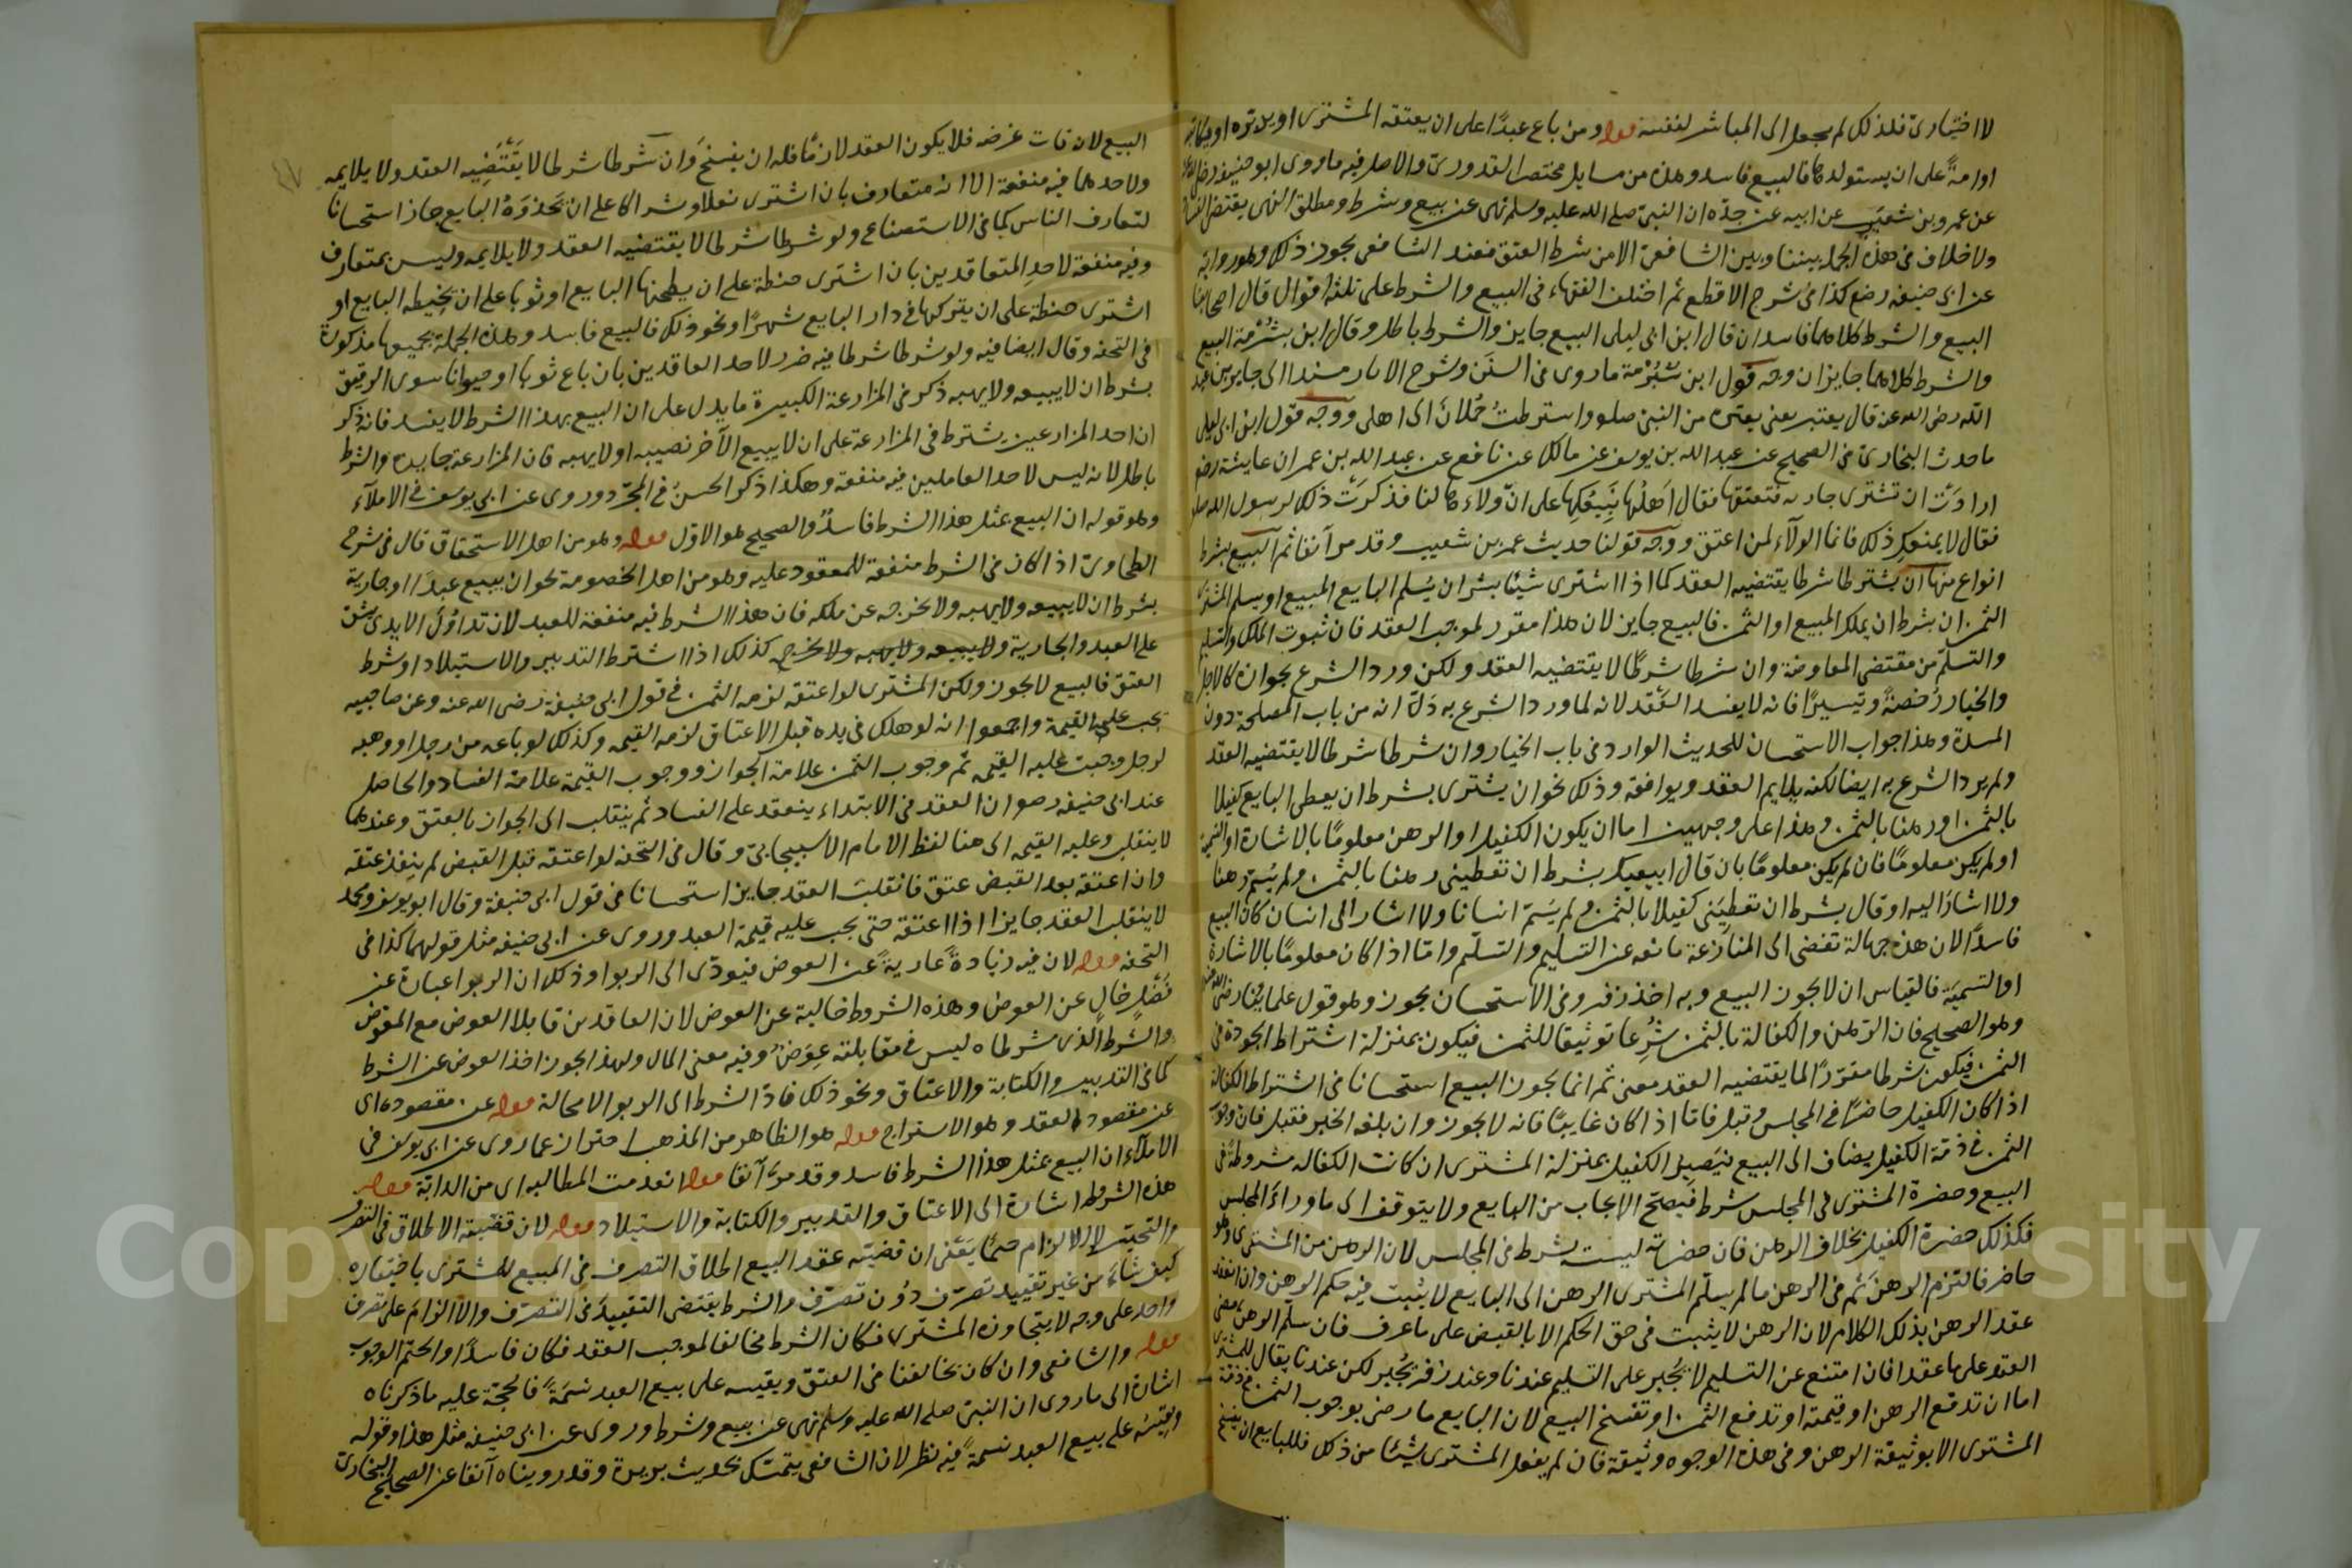 لا اختياري فلذلك لم يجعل الى المباشر لنفسه قوله ومن باع عبدًا على ان يعتقه المشترى او يدبّره او يكاتبه
او امةً على ان يستولدها فالبيع فاسد وهذه من مسايل مختصر القدورىّ والاصل فيه ما روى ابو حنيفة رضى الله عنه
عن عمرو بن شعيب عن ابيه عن جدّه ان النبىّ صلى الله عليه وسلم نهى عن بيع وشرط ومطلق النهى يقتضى الفساد
ولا خلاف فى هذه الجملة بيننا وبين الشافعىّ الا من شرط العتق فعند الشافعى يجوز ذلك وهو رواية
عن ابى حنيفة رضع كذا فى شرح الاقطع ثم اختلف الفقهاء فى البيع والشرط على ثلثة اقوال قال اصحابنا
البيع والشرط كلاهما فاسدان قال ابن ابى ليلى البيع جايز والشرط باطل وقال ابن شُبْرُمة البيع
والشرط كلاهما جايزان وجه قول ابن شُبْرُمة ما روى فى السنَن وشرح الاثار مسندا الى جابر بن عبد
الله رضى الله عنه قال يعتبر يعنى بعيره من النبىّ صلعم واشترطتُ حُملانَه الى اهلى ووجه قول ابن ابى ليلى
ما حدث البخارىّ فى الصحيح عن عبد الله بن يوسف عن مالك عن نافع عن عبد الله بن عمر ان عايشة رضع
ارادَتْ ان تشترى جارية فتعتقها فقال اَهلُها نَبيعُكِها على انّ ولاءها لنا فذكرَتْ ذلك لرسول الله صلعم
فقال لا يمنعكِ ذلك فانما الولآء لمن اعتق ووجه قولنا حديث عمرو بن شعيب وقد مر آنفا ثم البيع بشرط
انواع منها ان يشترطا شرطا يقتضيه العقد كما اذا اشترى شيئا بشرط ان يُسلم البايع المبيع او يسلم المشترى
الثمن او بشرط ان يملك المبيع او الثمن فالبيع جايز لان هذا مقرر لموجب العقد فان ثبوت الملك والتسليم
والتسلّم من مقتضى المعاوضة وان شرطا شرطًا لا يقتضيه العقد ولكن ورد الشرع بجوازه كالاجل
والخيار رُخصةً وتيسيرًا فانه لا يفسد العقد لانه لما ورد الشرع به دَلّ انه من باب المصلحة دون
المسدة وهذا جواب الاستحسان للحديث الوارد فى باب الخيار وان شرطا شرطا لا يقتضيه العقد
ولم يرد الشرع به ايضا لكنه يلايم العقد ويوافقه وذلك نحو ان يشترى بشرط ان يعطى البايع كفيلا
بالثمن او رهنا بالثمن وهذا على وجهين اما ان يكون الكفيل او الرهن معلومًا بالاشارة او التسمية
او لم يكن معلومًا فان لم يكن معلومًا بان قال ابيعك بشرط ان تعطينى رهنا بالثمن ولم يُسمّ رهنا
ولا اشارَ اليه او قال بشرط ان تعطِيَنى كفيلا بالثمن ولم يُسَمّ انسانا ولا اشار الى انسان كان البيع
فاسدًا لان هذه جهالة تفضى الى المنازعة مانعه عن التسليم والتسلّم وامّا اذا كان معلومًا بالاشارة
او التسميَة فالقياس ان لا يجوز البيع وبه اخذ زفر وفى الاستحسان يجوز وهو قول علمائنا رضى الله عنهم
وهو الصحيح فان الرّهن والكفالة بالثمن شُرِعا توثيقا للثمن فيكون بمنزلة اشتراط الجودة فى
الثمن فيكون شرطا مقرّرًا لما يقتضيه العقد معنى ثم انما يجوز البيع استحسانا فى اشتراط الكفالة
اذا كان الكفيل حاضرًا فى المجلس وقبل فاما اذا كان غايبًا فانه لا يجوز وان بلغه الخبر فقبل فان وجوب
الثمن فى ذمّة الكفيل يضاف الى البيع فيَصير الكفيل بمنزلة المشترى ان كانت الكفالة مشروطة فى
البيع وحضرة المشترى فى المجلس شرط فيصحّ الايجاب من البايع ولا يتوقف الى ما ورآء المجلس
فكذلك حضرة الكفيل بخلاف الرهن فان حضرته ليست بشرط فى المجلس لان الرهن من المشترى وهو
حاضر فالتزم الرهنَ ثم فى الرهن ما لم يسلّم المشترى الرهن الى البايع لا يثبت فيه حكم الرهن وان انعقد
عقد الرهن بذلك الكلام لان الرهن لا يثبت فى حق الحكم الا بالقبض على ما عرف فان سلّم الرهن مضى
العقد على ما عقدا فان امتنع عن التسليم لا يُجبر على التسليم عندنا وعند زفر يُجبر لكن عندنا يقال للمشترى
اما ان تدفع الرهن او قيمته او تدفع الثمن او تفسخ البيع لان البايع ما رضى بوجوب الثمن فى ذمة
المشترى الا بوثيقة الرهن وفى هذه الوجوه وثيقة فان لم يفعل المشترى شيئا من ذلك فللبايع ان يفسخ
البيع لانه فات غرضه فلا يكون العقد لازمًا فله ان يفسخَ وان شرطا شرطا لا يَقْتَضِيه العقد ولا يلايمه
ولاحدهما فيه منفعة الا انه متعارف بان اشترى نعلا وشراكا على ان يَحْذوَهُ البايع جاز استحسانا
لتعارف الناس كما فى الاستصناع ولو شرطا شرطا لا يقتضيه العقد ولا يلايمه وليس بمتعارف
وفيه منفعة لاحد المتعاقدين بان اشترى حنطة على ان يطحنها البايع او ثوبا على ان يخيطه البايع او
اشترى حنطة على ان يتركها فى دار البايع شهرًا ونحو ذلك فالبيع فاسد وهذه الجملة بجميعها مذكورة
فى التحفه وقال ايضا فيه ولو شرطا شرطا فيه ضرر لاحد العاقدين بان باع ثوبا او حيوانا سوى الرقيق
بشرط ان لا يبيعه ولا يهبه ذكر فى المزارعة الكبيرة ما يدل على ان البيع بهذا الشرط لا يفسد فانه ذكر
ان احد المزارعين يشترط فى المزارعة على ان لا يبيع الآخر نصيبه او لا يهبه فان المزارعة جايزة والشرط
باطل لانه ليس لاحد العاملين فيه منفعة وهكذا ذكر الحسنُ فى المجرّد وروى عن ابى يوسف فى الاملآء
وهو قوله ان البيع بمثل هذا الشرط فاسدٌ والصحيح هو الاوّل قوله وهو من اهل الاستحقاق قال فى شرح
الطحاوىّ اذا كان فى الشرط منفعة للمعقود عليه وهو من اهل الخصومة نحو ان يبيع عبدًا او جارية
بشرط ان لا يبيعه ولا يهبه ولا يخرجه عن ملكه فان هذا الشرط فيه منفعة للعبد لان تداوُلَ الايدى يشق
على العبد والجارية ولا يبيعه ولا يهبه ولا يخرجه كذلك اذا اشترط التدبير والاستيلاد او شرط
العتق فالبيع لا يجوز ولكن المشترى لو اعتقه لزمه الثمن فى قول ابى حنيفة رضى الله عنه وعن صاحبيه
يجب عليه القيمة واجمعوا انه لو هلك فى يده قبل الاعتاق لزمه القيمه وكذلك لو باعه من رجل او وهبه
لرجل وجبت عليه القيمه ثم وجوب الثمن علامة الجواز ووجوب القيمة علامة الفساد والحاصل
عند ابى حنيفه رضع ان العقد فى الابتداء ينعقد على الفساد ثم ينقلب الى الجواز بالعتق وعندهما
لا ينقلب وعليه القيمه الى هنا لفظ الامام الاسبيجابىّ وقال فى التحفه لو اعتقه قبل القبض لم ينفذ عتقه
وان اعتقه بعد القبض عتق فانقلب العقد جايزا استحسانا فى قول ابى حنيفة وقال ابو يوسف ومحمد
لا ينقلب العقد جايزا اذا اعتقه حتى يجب عليه قيمة العبد وروى عن ابى حنيفه مثل قولهما كذا فى
التحفه قوله لان فيه زيادةً عاريةً عن العوض فيودّى الى الربوا وذلك ان الربوا عبارة عن
فَضْلٍ خالٍ عن العوض وهذه الشروط خالية عن العوض لان العاقدين قابلا العوض مع المعوض
والشرط الذى شرطاه ليس فى مقابلته عِوَضٌ وفيه معنى المال ولهذا يجوز اخذ العوض عن الشرط
كما فى التدبير والكتابة والاعتاق ونحو ذلك فادّى الشرط الى الربوا لا محالة قوله عن مقصوده اى
عن مقصود العقد وهو الاسترباح قوله هو الظاهر من المذهب احتراز عما روى عن ابى يوسف فى
الاملآء ان البيع بمثل هذا الشرط فاسد وقد مرّ آنفا قوله انعدمت المطالبه اى من الدابّة قوله
هذه الشروط اشارة الى الاعتاق والتدبير والكتابة والاستيلاد قوله لان قضيّته الاطلاق فى التصرف
والتخيير لا الالزام حتمًا يَعْنى ان قضيّة عقد البيع اطلاق التصرف فى المبيع للمشترى باختياره
كيف شآءَ من غير تقييد تصرّف دُون تصرّف والشرط يقتضى التقييدَ فى التصرّف والالزام على تصرف
واحد على وجه لا يتجاوزه المشترى فكان الشرط مخالفا لموجب العقد فكان فاسدًا والحتم الوجوب
قوله والشافعى وان كان يخالفنا فى العتق ويقيسه على بيع العبد نسمَةً فالحجّة عليه ما ذكرناه
اشارة الى ما روى ان النبىّ صلى الله عليه وسلم نهى عن بيع وشرط وروى عن ابى حنيفه مثل هذا وقوله
ويقيسُه على بيع العبد نسمةً فيه نظر لان الشافعى يتمسّك بحديث بريرة وقد رويناه آنفا عن الصحيح البخارىّ
Copyright © King Saud University